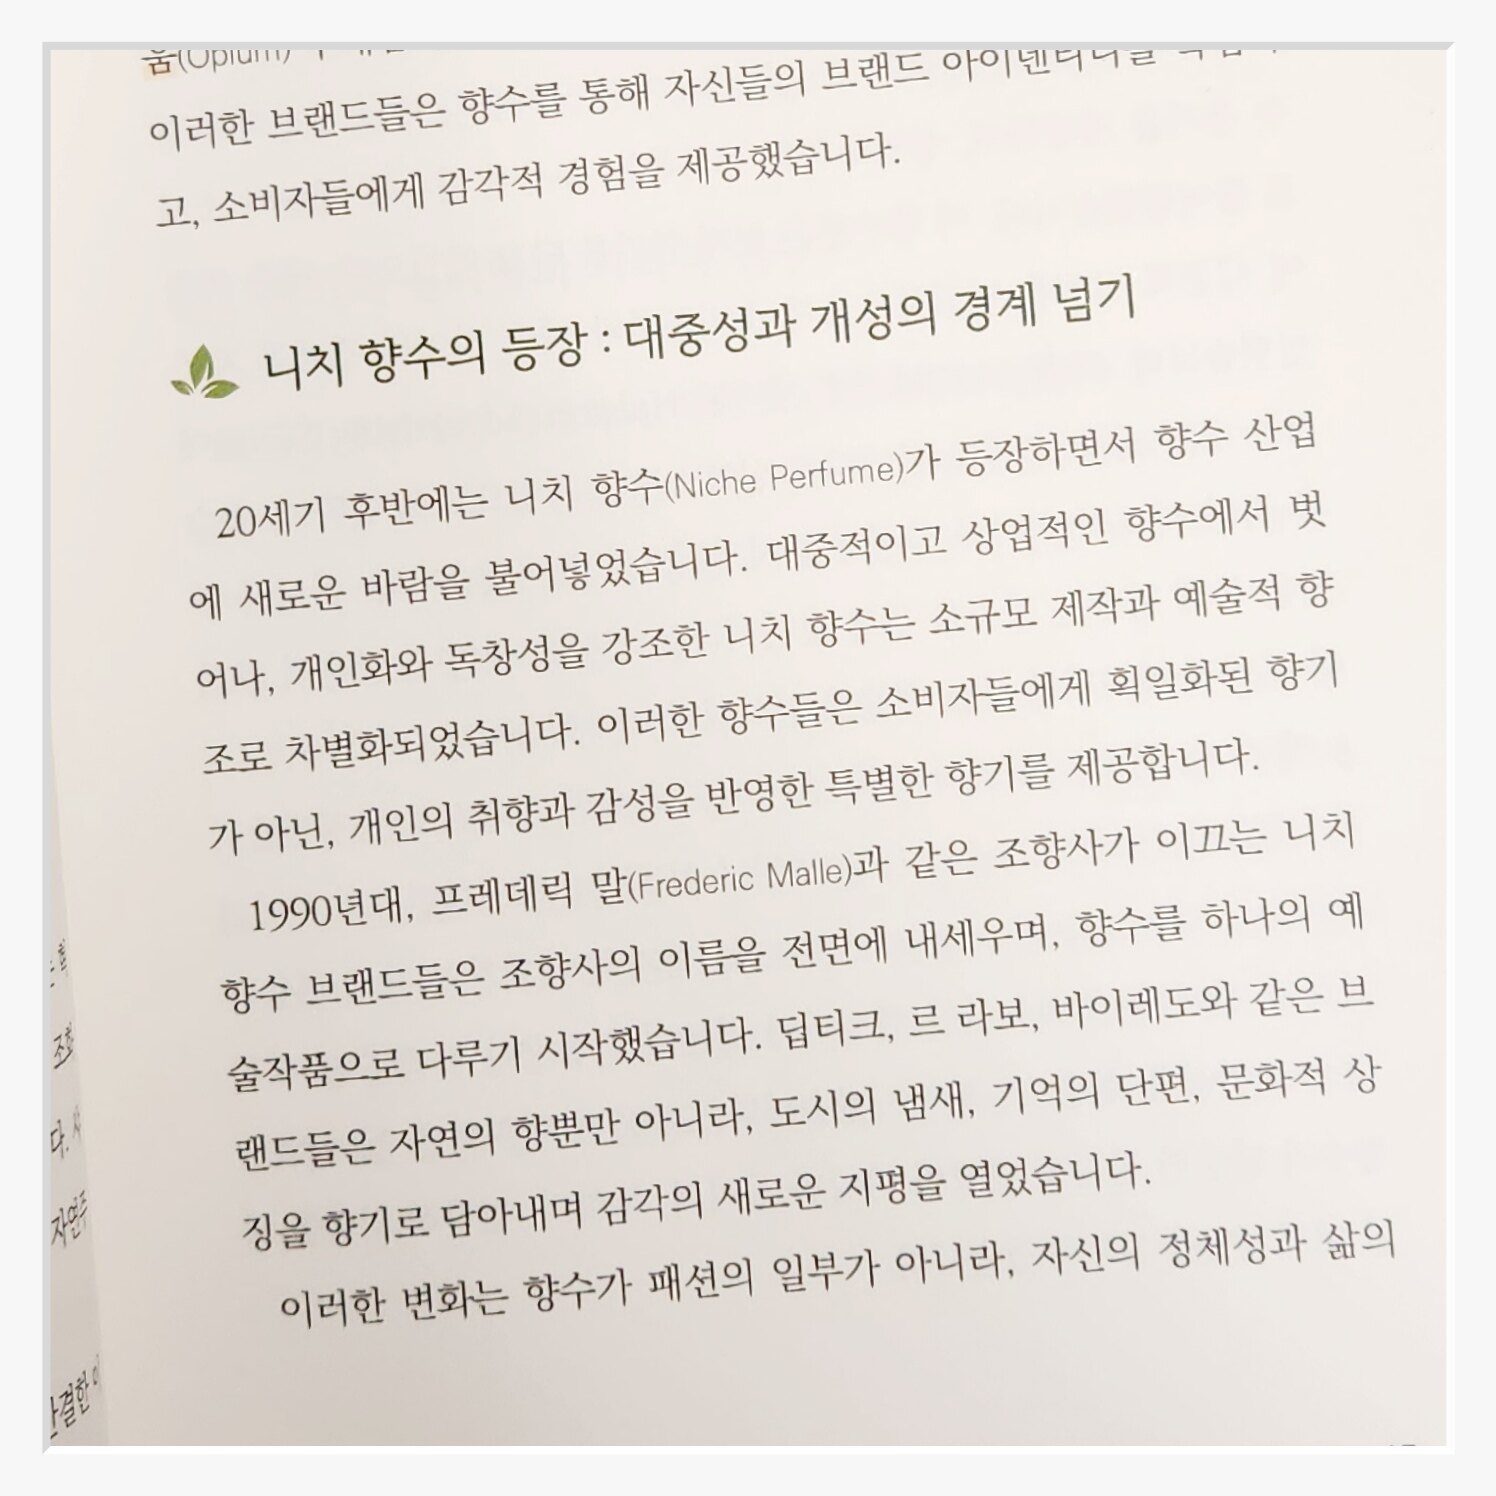 움(Opium)
이러한 브랜드들은 향수를 통해 자신들의 브랜드 아이덴티티를
고, 소비자들에게 감각적 경험을 제공했습니다.
니치 향수의 등장 : 대중성과 개성의 경계 넘기
20세기 후반에는 니치 향수(Niche Perfume)가 등장하면서 향수 산업
에 새로운 바람을 불어넣었습니다. 대중적이고 상업적인 향수에서 벗
어나, 개인화와 독창성을 강조한 니치 향수는 소규모 제작과 예술적 향
조로 차별화되었습니다. 이러한 향수들은 소비자들에게 획일화된 향기
가 아닌, 개인의 취향과 감성을 반영한 특별한 향기를 제공합니다.
1990년대, 프레데릭 말(Frederic Malle)과 같은 조향사가 이끄는 니치
향수 브랜드들은 조향사의 이름을 전면에 내세우며, 향수를 하나의 예
술작품으로 다루기 시작했습니다. 딥티크, 르 라보, 바이레도와 같은 브
랜드들은 자연의 향뿐만 아니라, 도시의 냄새, 기억의 단편, 문화적 상
징을 향기로 담아내며 감각의 새로운 지평을 열었습니다.
이러한 변화는 향수가 패션의 일부가 아니라, 자신의 정체성과 삶의